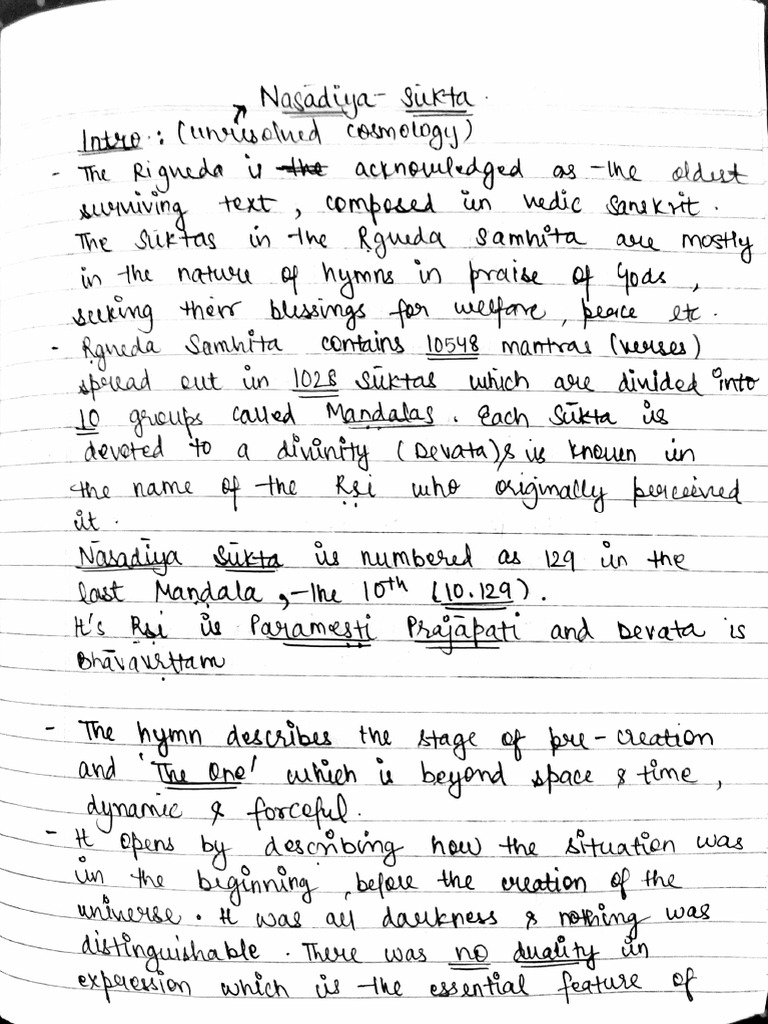 Nasadiya - sūkta.
Intro.: (unresolved cosmology)
- The Rigveda is the acknowledged as the oldest
surviving text, composed in vedic sanskrit.
The sūktas in the Ṛgveda samhita are mostly
in the nature of hymns in praise of Gods,
seeking their blessings for welfare, peace etc.
- Ṛgveda Samhita contains 10548 mantras (verses)
spread out in 1028 sūktas which are divided into
10 groups called Manḍalas. Each Sūkta is
devoted to a divinity (Devata) & is known in
the name of the Ṛṣi who originally perceived
it.
Nāsadīya sūkta is numbered as 129 in the
last Manḍala, the 10th (10.129).
It's Ṛṣi is Parameṣṭi Prajāpati and Devata is
Bhāvavṛttam
- The hymn describes the stage of pre-creation
and 'The One' which is beyond space & time,
dynamic & forceful.
- It opens by describing how the situation was
in the beginning, before the creation of the
universe. It was all darkness & nothing was
distinguishable. There was no duality in
expression which is the essential feature of